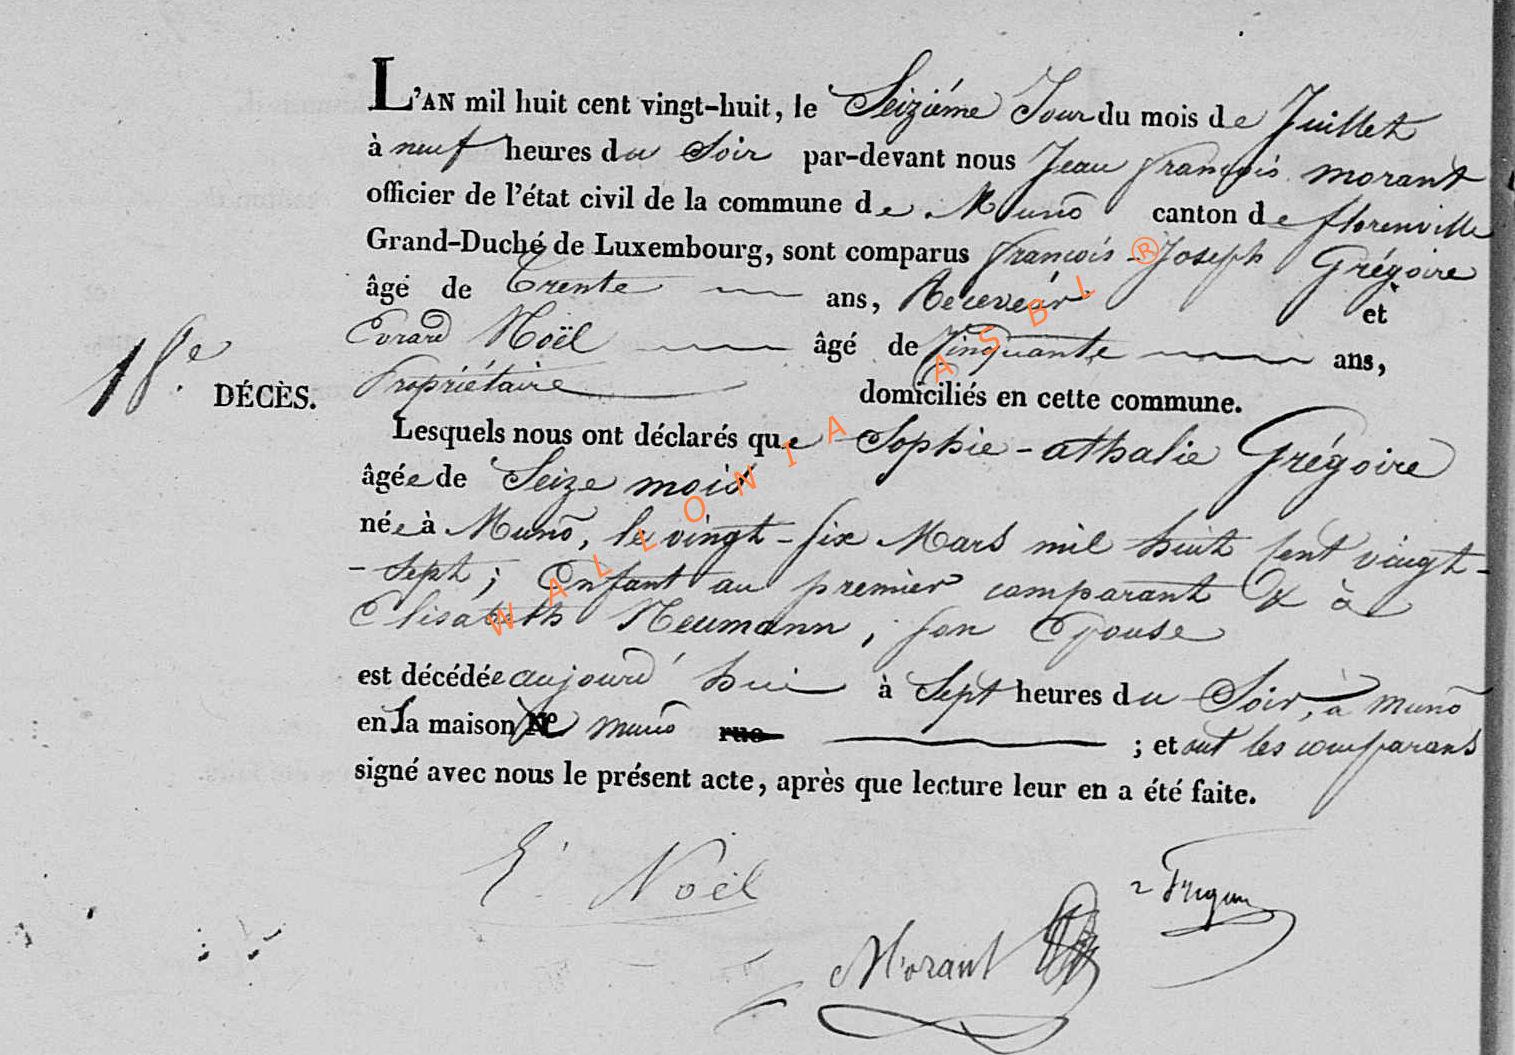 L'AN mil huit cent vingt-huit, le Seiziéme Jour du mois de Juillet
à neuf heures du Soir par-devant nous Jean françois morant
officier de l'état civil de la commune de Munō canton de florenville
Grand-Duché de Luxembourg, sont comparus françois-Joseph Grégoire
âgé de Trente ans, Receveur et
Evrard Noël âgé de Cinquante ans,
18.e DÉCÈS.
Propriétaire domiciliés en cette commune.
Lesquels nous ont déclarés que Sophie-athalie Grégoire
âgée de Seize mois
née à Munō, le vingt-six Mars mil huit Cent vingt-
-Sept; Enfant au premier comparant & à
Elisabeth Neumann, son Epouse
est décédée aujourd'hui à Sept heures du Soir, à munō
en sa maison N.º munō rue ; et ont les comparans
signé avec nous le présent acte, après que lecture leur en a été faite.
E. Noël
Morant
WALLONIA ASBL ®